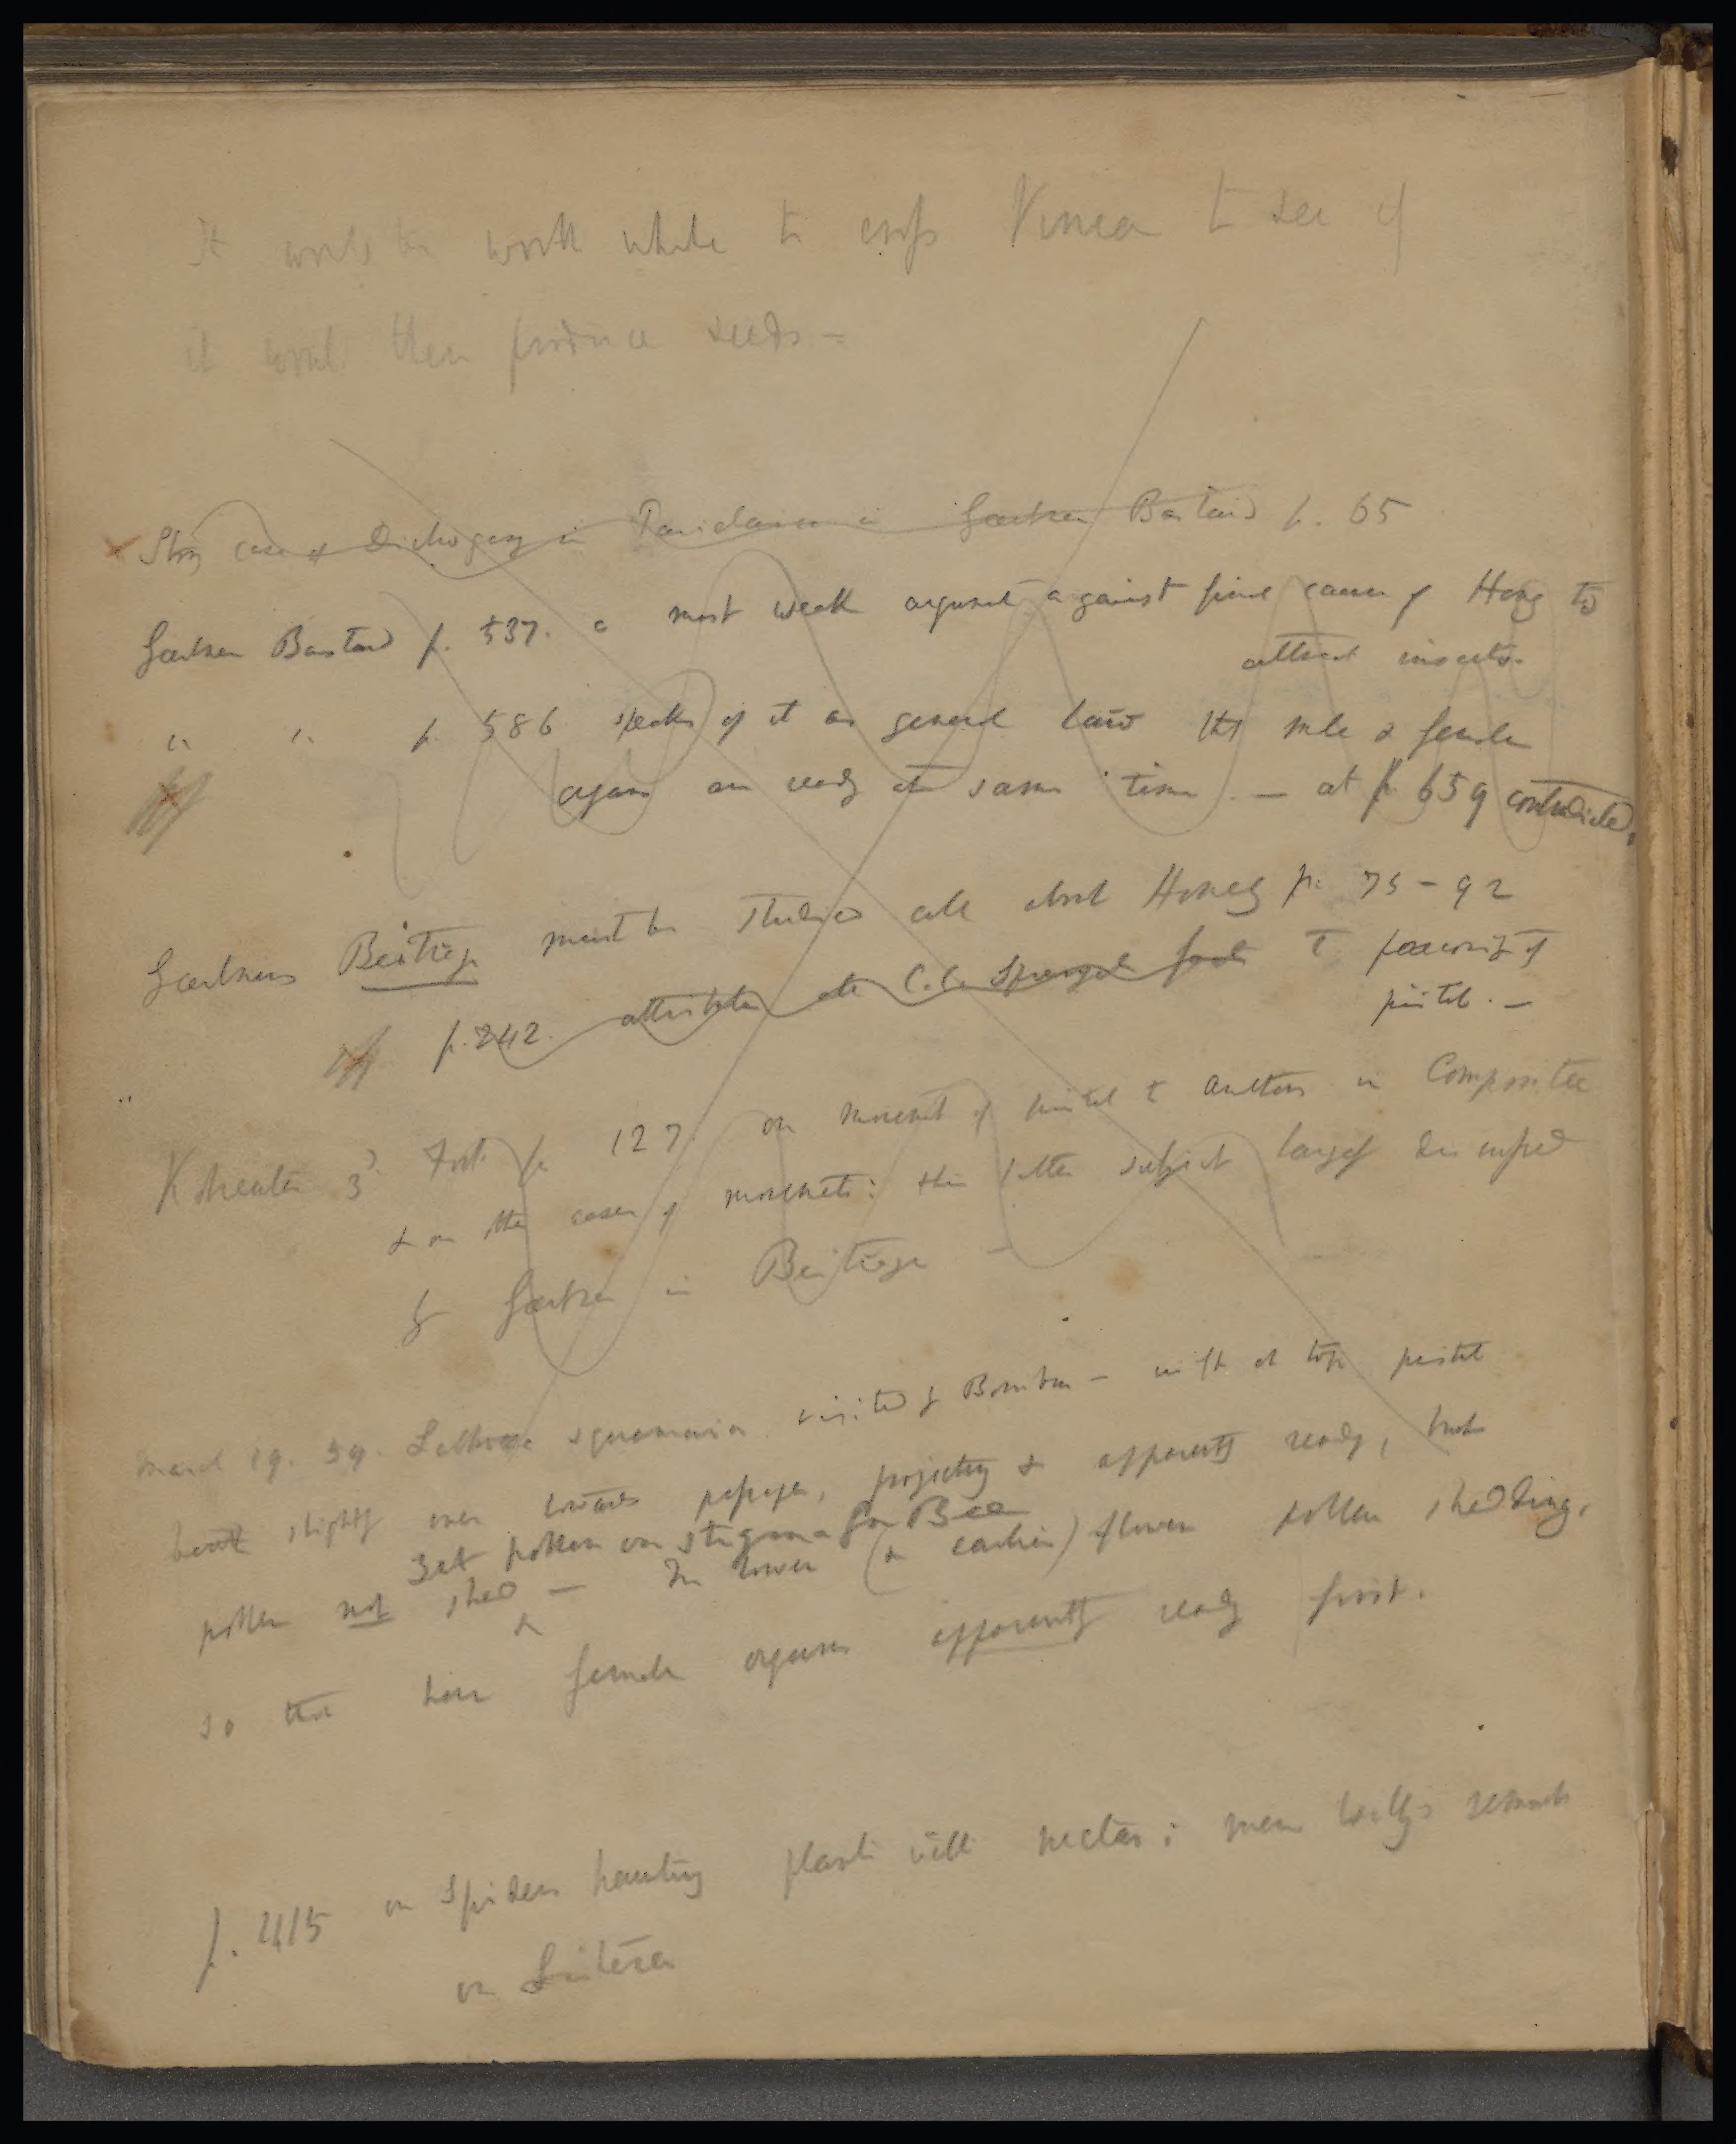 It would be worth while to cross Vinca to see if
it would then produce seeds —
Strong case of Dichogamy in in Gærtner Bastard p. 65
Gærtner Bastard p. 537. a most weak argument against final cause of Honey to
attract insects.
" " p. 586 speaks of it as general law that male & female
organs are ready at same time. — at p. 659 contradicted.
Gærtners Beitrage must be studied all about Honey p. 75-92
p. 242. attributes all C.C. Sprengel facts to of
pistil. —
Kolreuter 3d. Fort. p. 127 on movement of pistil & anthers in Compositæ
& on the cases of movements: this latter subject largely discussed
by Gærtner in Beitrage —
March 19. 59. Lathræa squamaria visited by Bombus — at top pistil
bent slightly over towards passage, projecting & apparently ready, but
Yet pollen on stigma from Bee
pollen not shed — In lower (& earlier) flower pollen shedding,
&
so that here female organs apparently ready first.
p. 415 on Spiders haunting plants with nectar: remark
on Listera